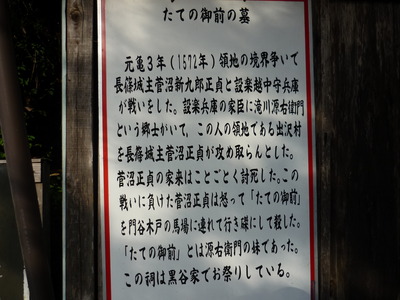 たての御前の墓
元亀３年（1572年）領地の境界争いで
長篠城主菅沼新九郎正貞と設楽越中守兵庫
が戦いをした。設楽兵庫の家臣に滝川源右衛門
という郷士がいて、この人の領地である出沢村
を長篠城主菅沼正貞が攻め取らんとした。
菅沼正貞の家来はことごとく討死した。この
戦いに負けた菅沼正貞は怒って「たての御前」
を門谷木戸の馬場に連れて行き磔にして殺した。
「たての御前」とは源右衛門の妹であった。
この祠は黒谷家でお祭りしている。